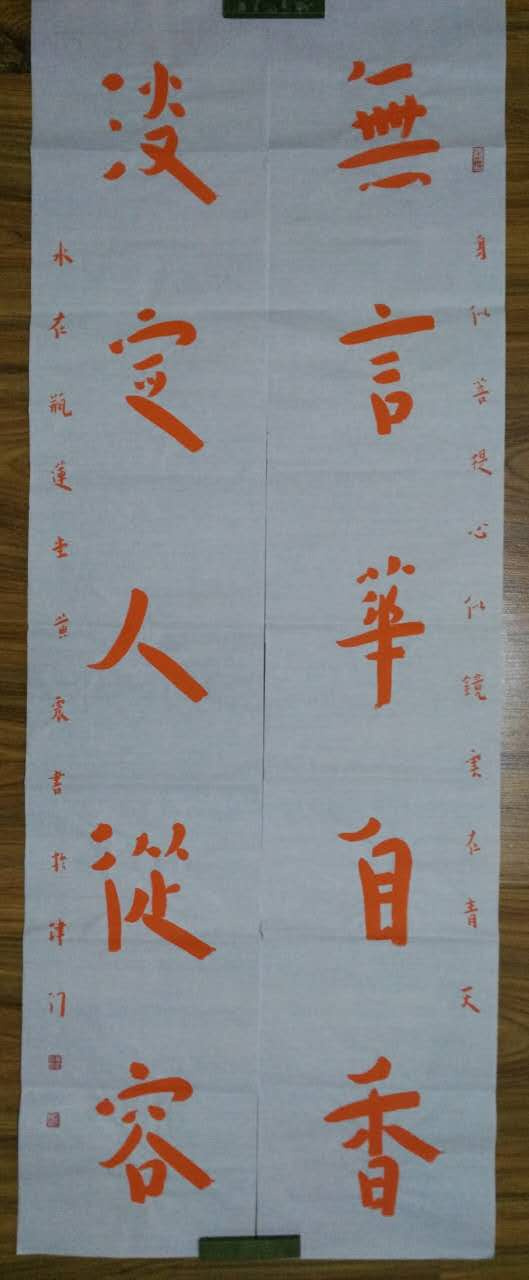 身似菩提心似鏡雲在青天
無言華自香
淡定人從容
水在瓶蓮堂黄震書於津门